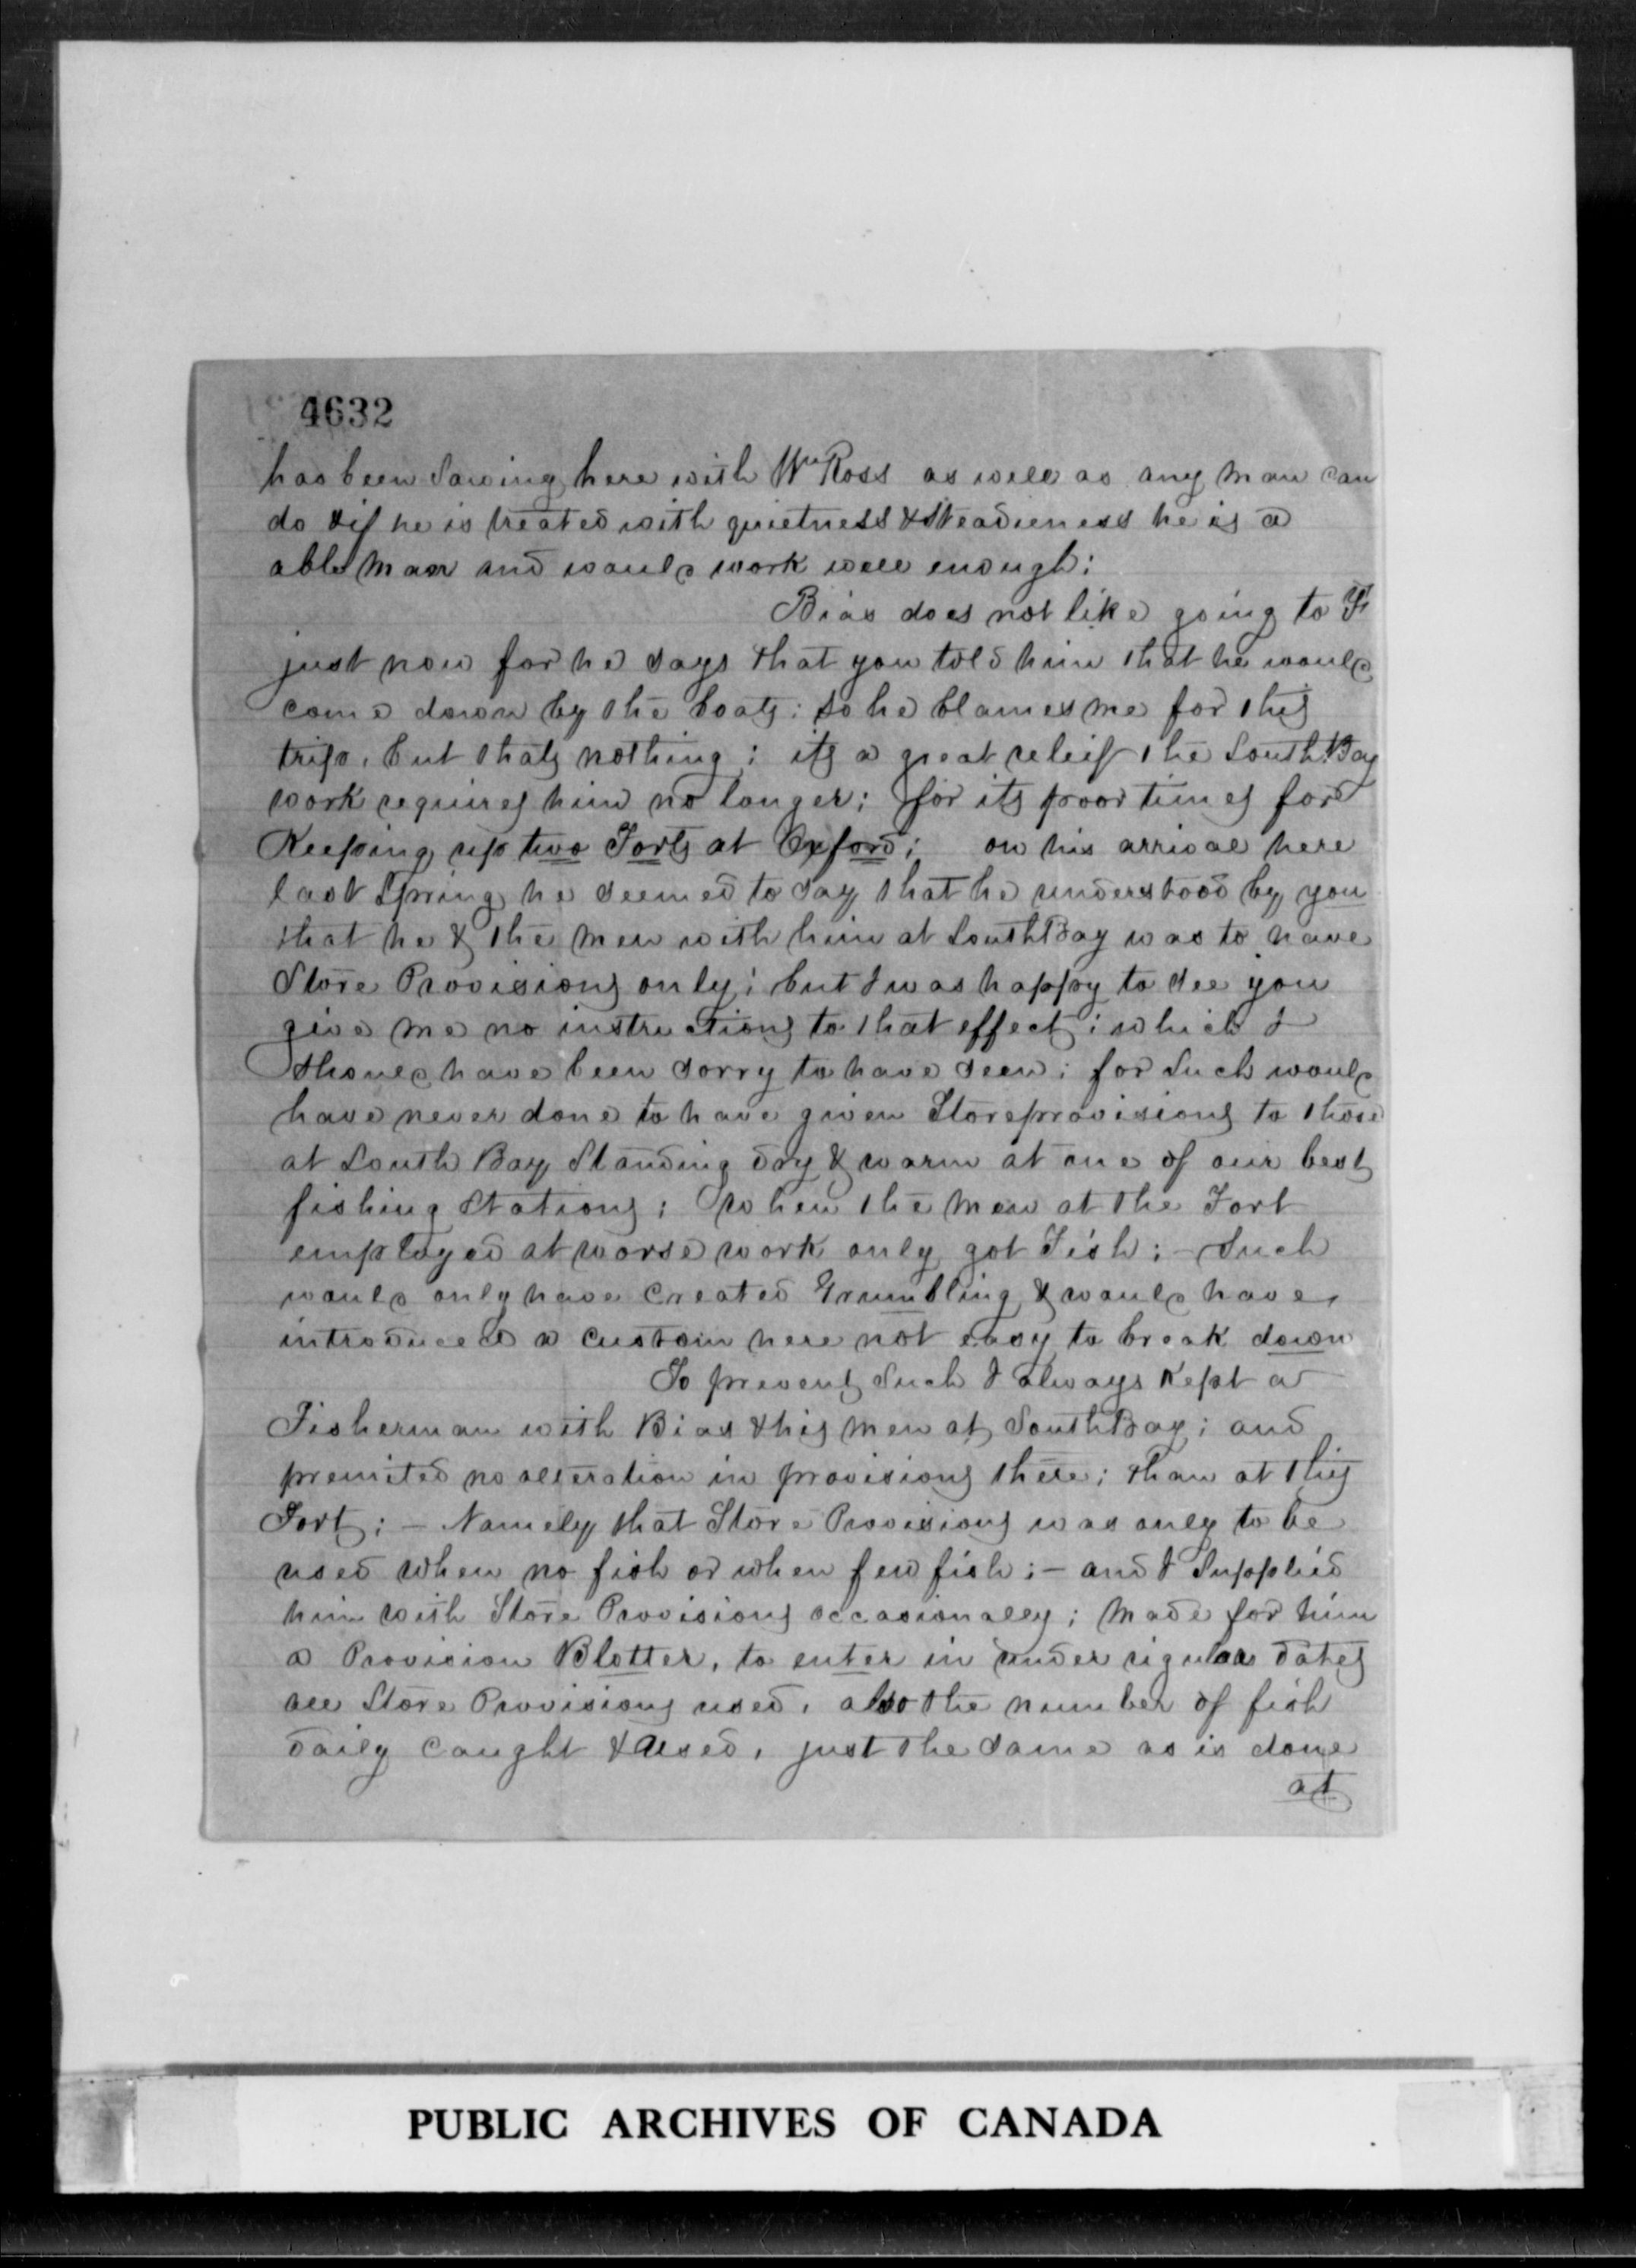 4632
has been Sawing here with Wm Ross as well as any man can
do & if he is treated with quietness & steadieness he is a
able man and would work well enough;
Bias does not like going to
just now for he says that you told him that he would
come down by the boats; so he blames me for this
trip, but thats nothing; its a great releif the South Bay
work requires him no longer; for its poor times for
Keeping up two Forts at Oxford; on his arrival here
last Spring he seemed to say that he understood by you
that he & the men with him at South Bay was to have
Store Provisions only; but I was happy to see you
give me no instructions to that effect; which I
should have been sorry to have seen; for Such would
have never done to have given Store provisions to those
at South Bay Standing dry & warm at one of our best
fishing Stations; when the men at the Fort
employed at worse work only got Fish; - Such
would only have Created Grumbling & would have
introduced a Custom here not easy to break down
To prevent Such I always Kept a
Fisherman with Bias & his men at South Bay; and
premited no alteration in provisions there; than at this
Fort; - Namely that Store Provisions was only to be
used when no fish or when few fish; - and I Supplied
him with Store Provisions occasionally; made for him
a Provision Blotter, to enter in under rigular dates
all Store Provisions used, also the number of fish
daily Caught & Used, just the same as is done
at
PUBLIC ARCHIVES OF CANADA